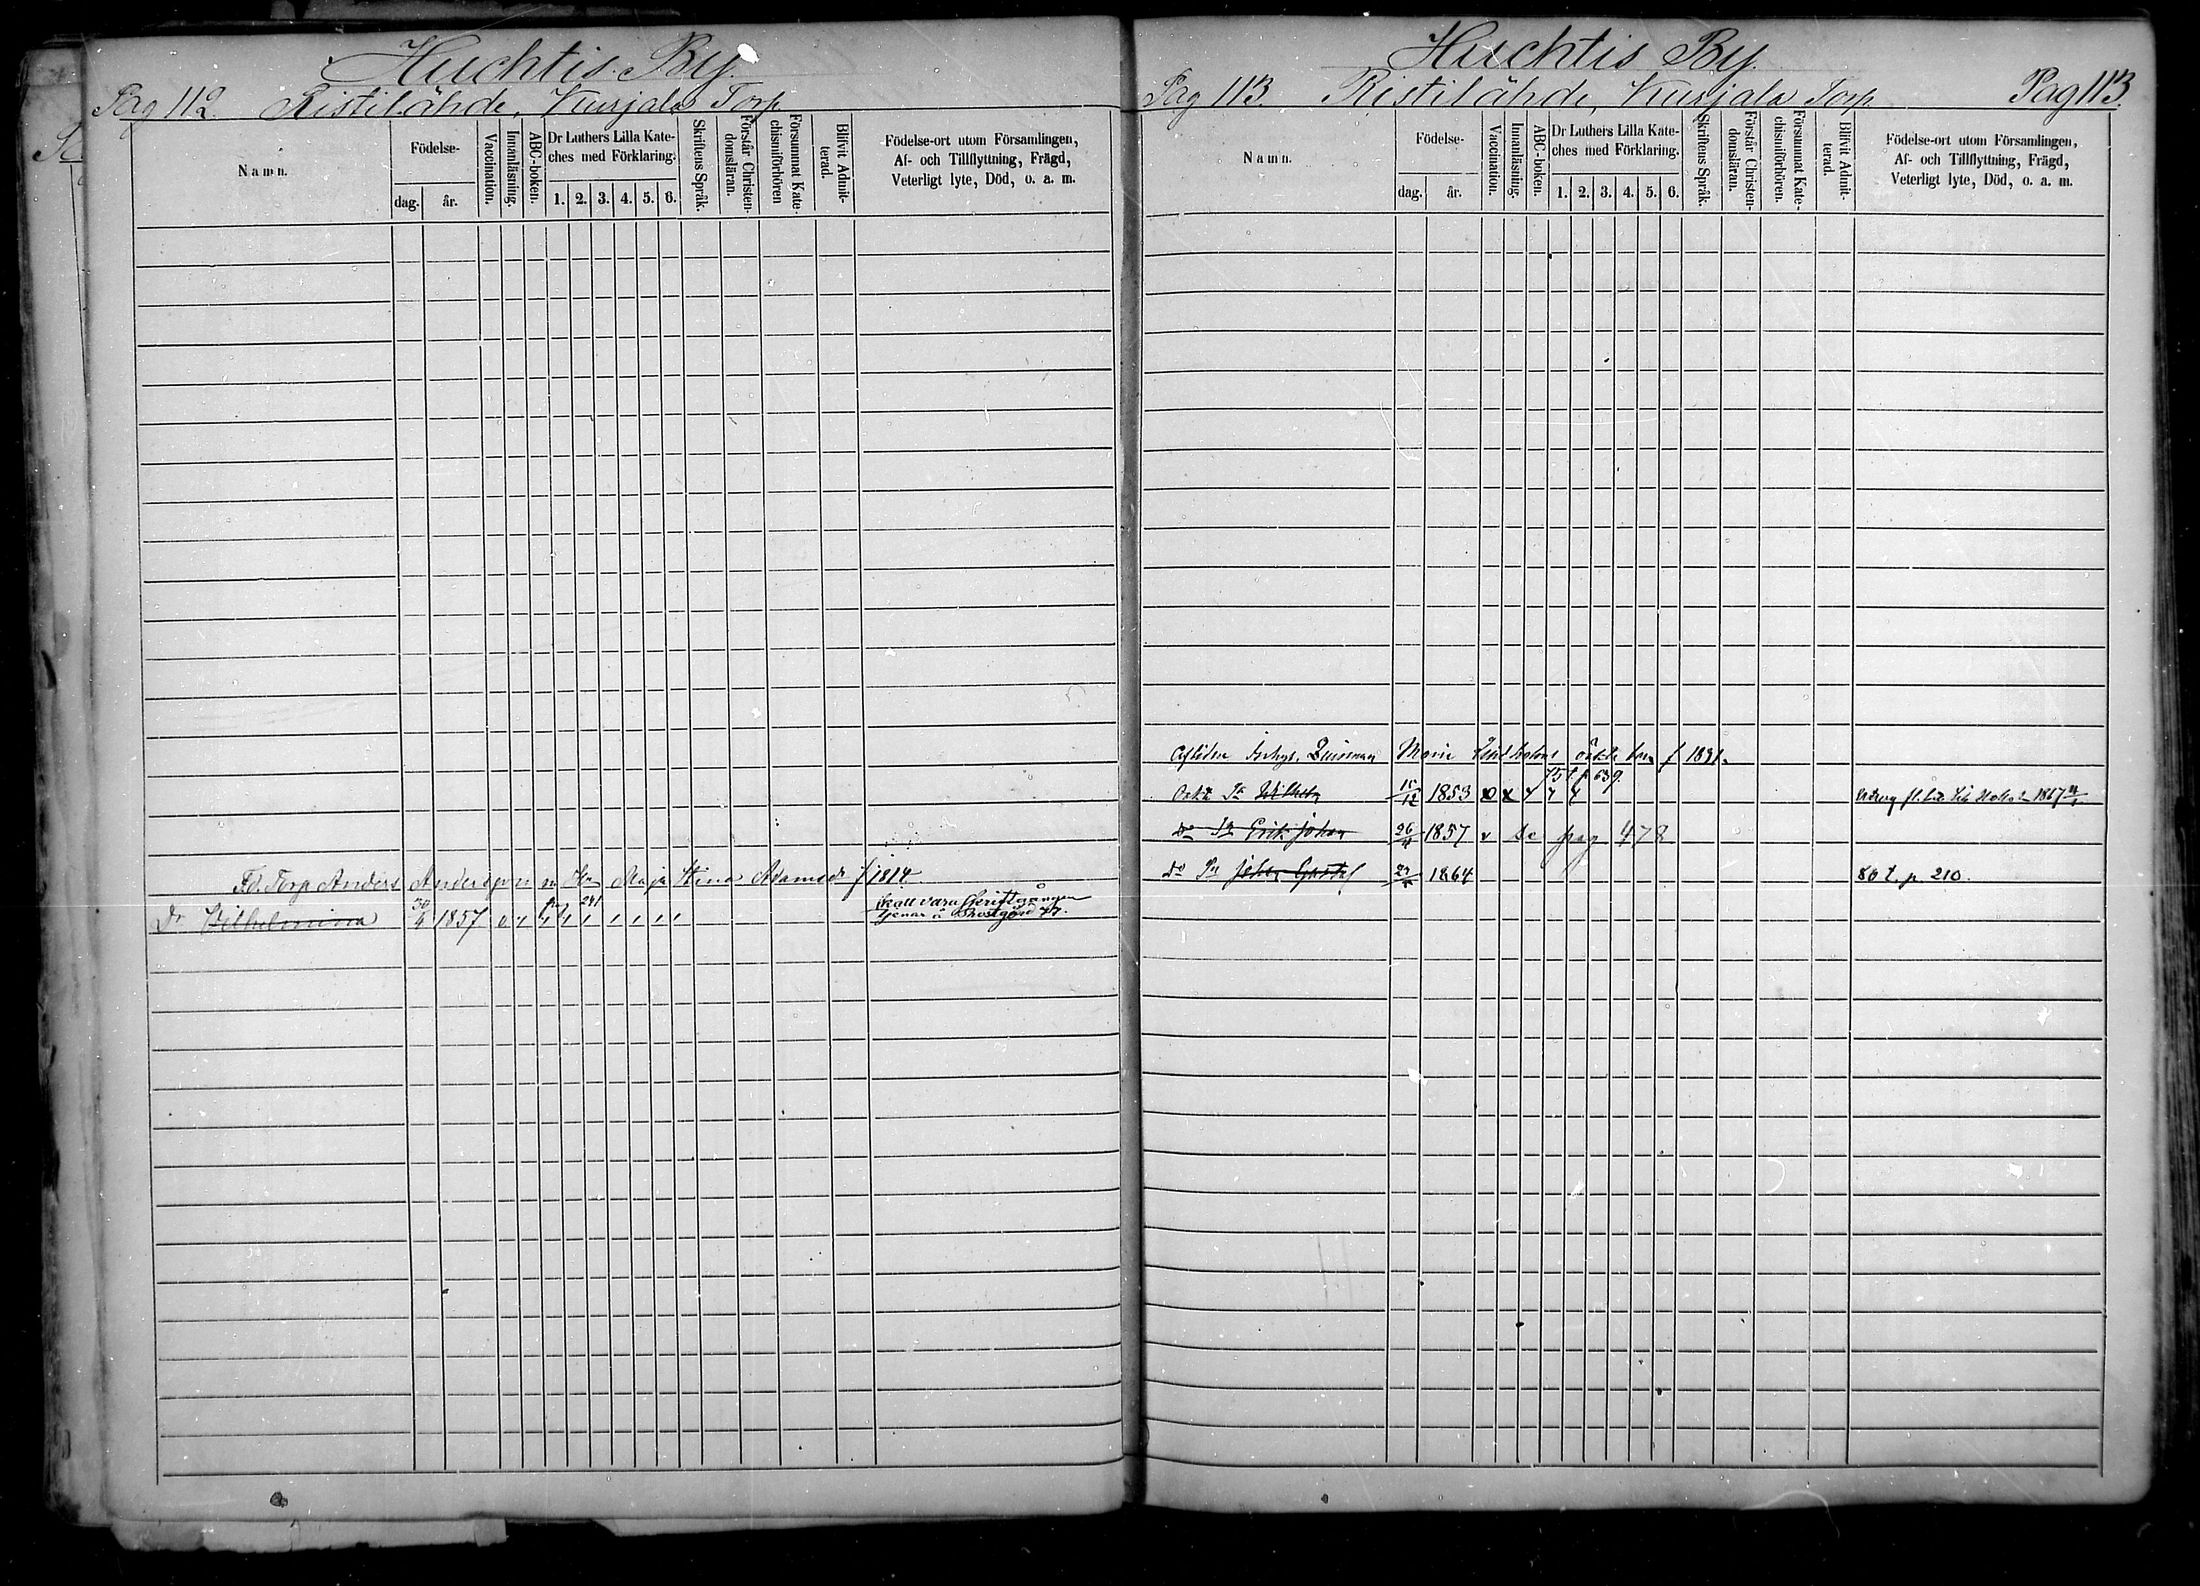 Huchtis By.
Pag 112. Ristilähde, Kurjala Torp
Namn.
Födelse-
dag. år.
Vaccination.
Innanläsning.
ABC-boken.
Dr Luthers Lilla Kate-
ches med Förklaring.
1. 2. 3. 4. 5. 6.
Skriftens Språk.
Förstår Christen-
domsläran.
Försummat Kate-
chismiförhören
Blifvit Admit-
terad.
Födelse-ort utom Församlingen,
Af- och Tillflyttning, Frägd,
Veterligt lyte, Död, o. a. m.
Fd. Torp Anders Andersson Maja Stina Adamsdr f 1814
Skall vara Skriftgången
Dr Wilhelmina 30/6 1857 tjenar å Prostgård 77.
Huchtis By.
Pag 113. Ristilähde, Kurjala Torp Pag 113.
Namn.
Födelse-
dag. år.
Vaccination.
Innanläsning.
ABC-boken.
Dr Luthers Lilla Kate-
ches med Förklaring.
1. 2. 3. 4. 5. 6.
Skriftens Språk.
Förstår Christen-
domsläran.
Försummat Kate-
chismiförhören.
Blifvit Admit-
terad.
Födelse-ort utom Församlingen,
Af- och Tillflyttning, Frägd,
Veterligt lyte, Död, o. a. m.
Aflidne f 1831.
75 t. p 639.
Sn Wilhelm 15/12 1853 x 1867
Do Sn Erik Johan 26/11 1857 v Se pag 478
Do Sn Johan Gustaf 1864 80 t. p. 210.